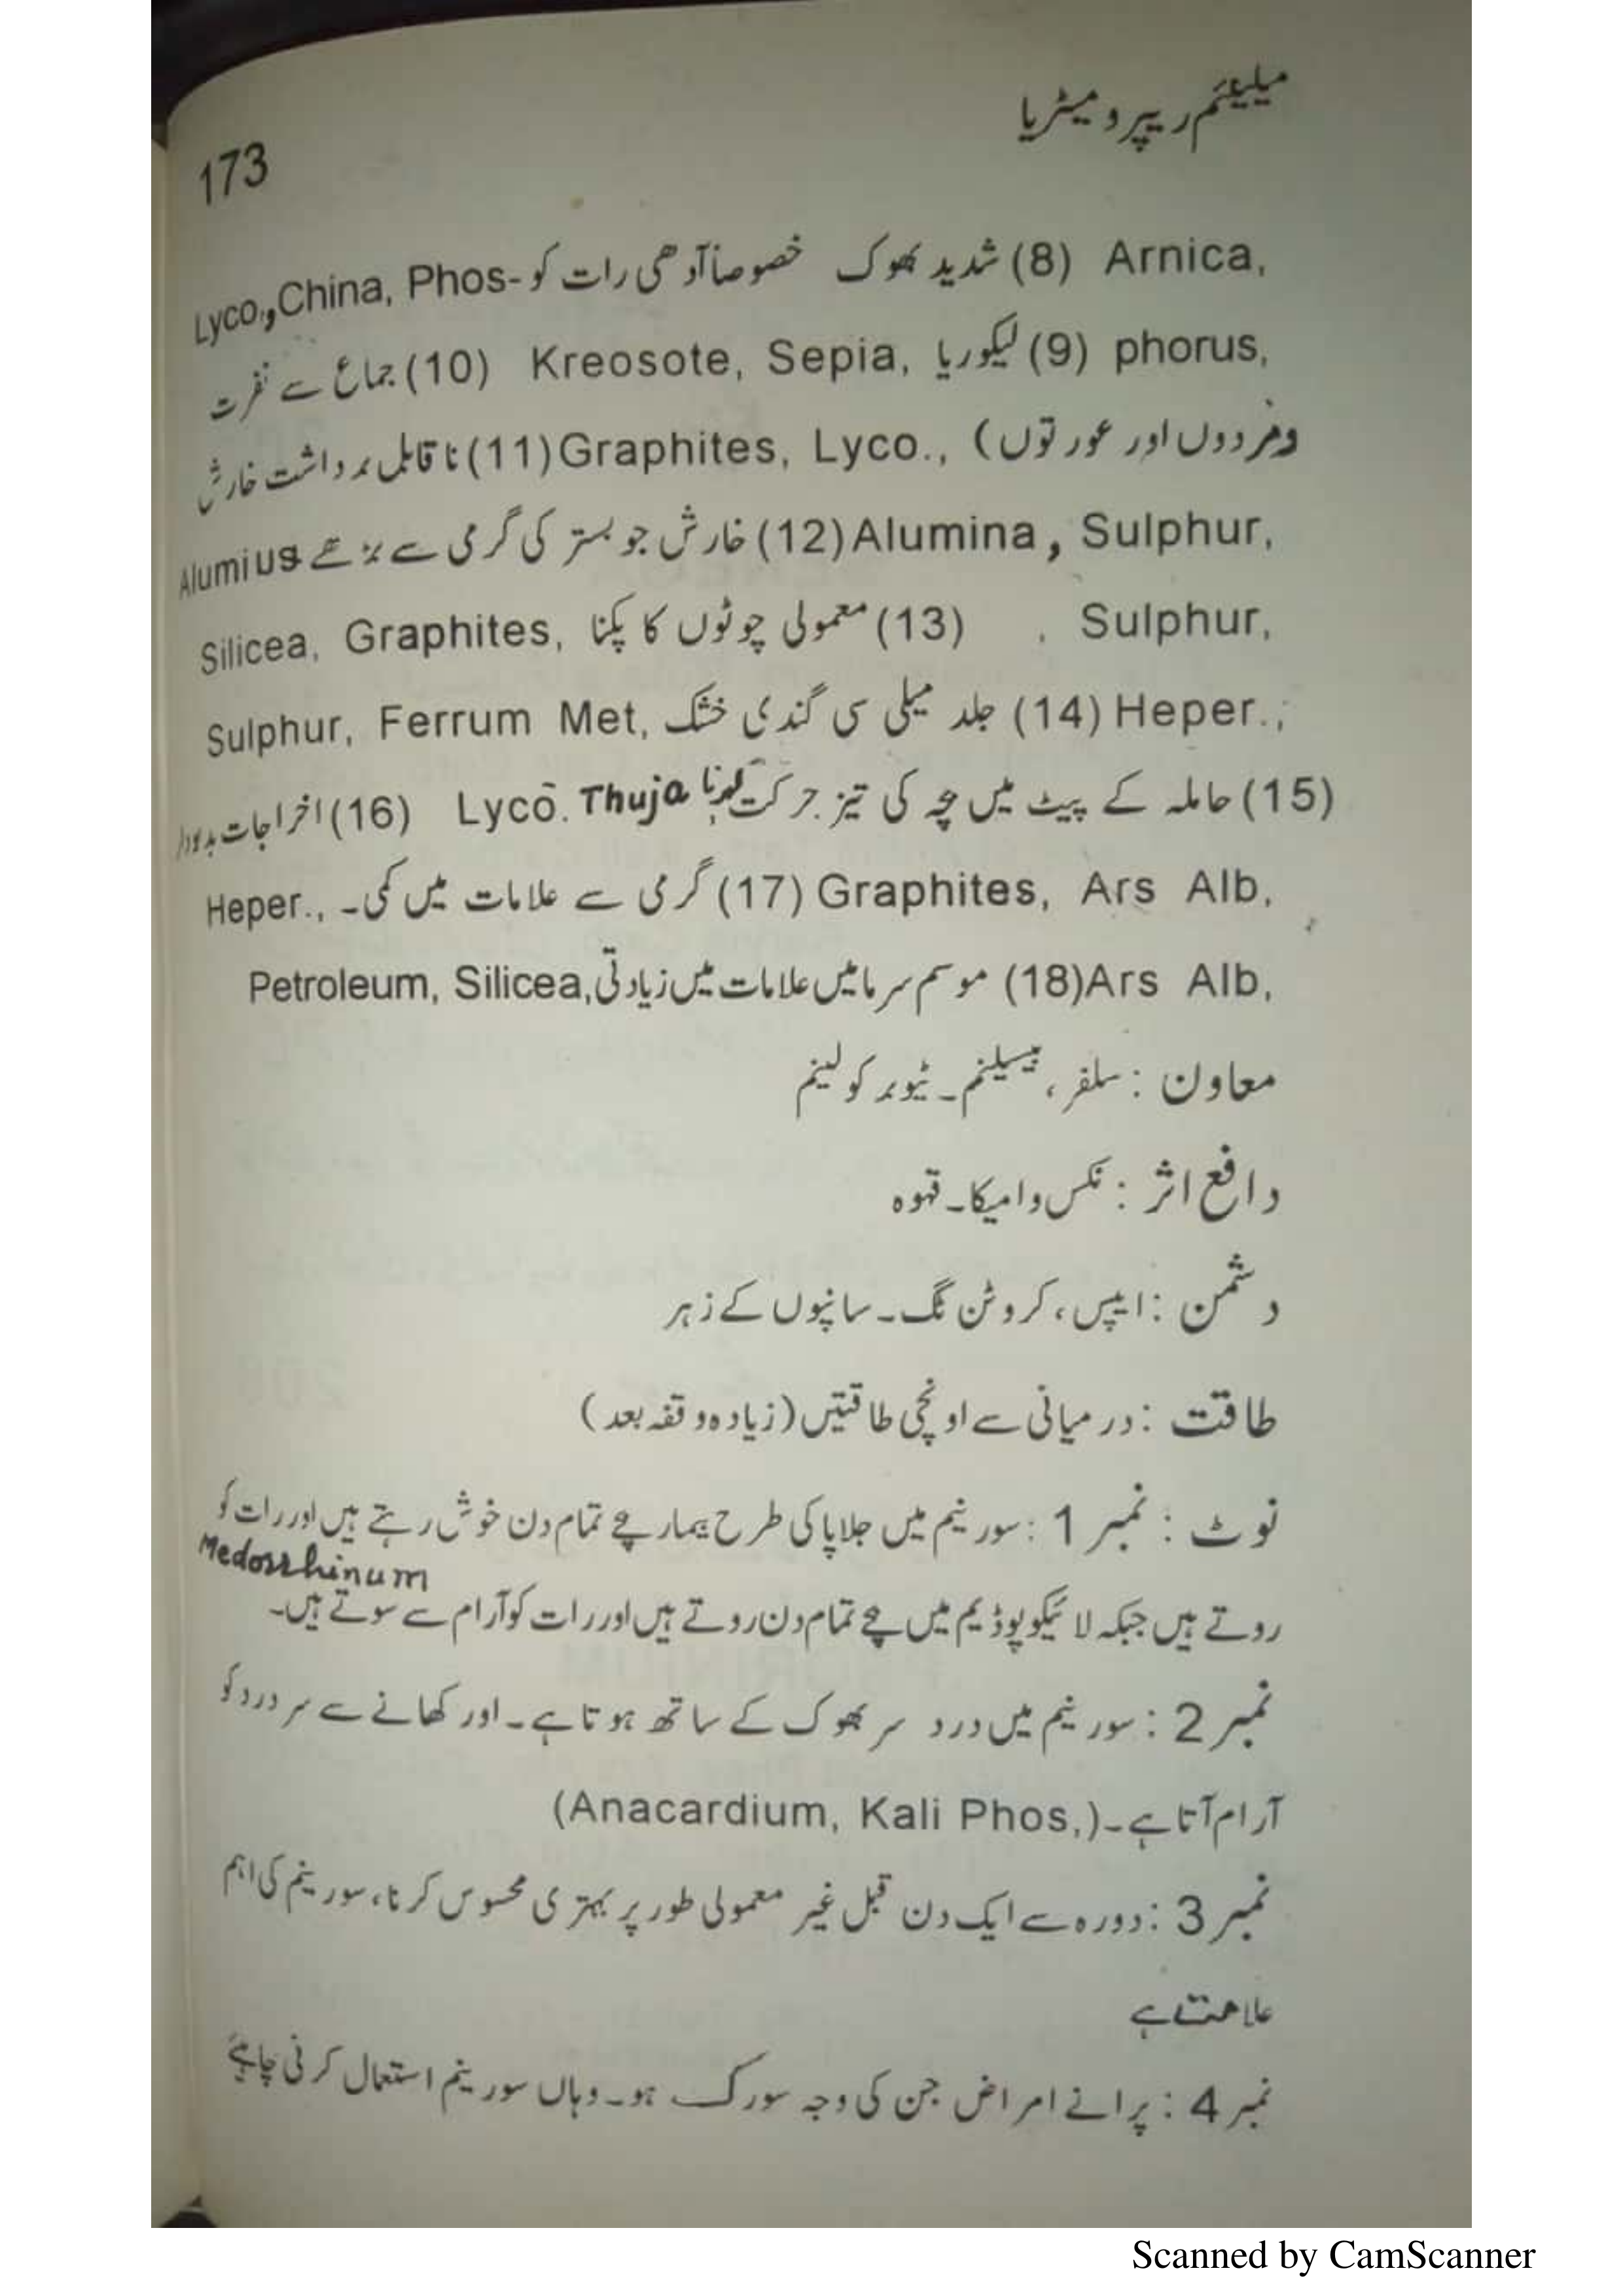 میلینئم ریپرومیٹریا
173
Arnica, (8) شدید بھوک خصوصاً آدھی رات کو Lyco., China, Phos-
phorus, (9) لیکوریا Kreosote, Sepia, (10) جماع سے نفرت
(مردوں اور عورتوں) Graphites, Lyco., (11) ناقابل برداشت خارش
Alumina, Sulphur, (12) خارش جو بستر کی گرمی سے بڑھے Alumius
Sulphur, (13) معمولی چوٹوں کا پکنا Silicea, Graphites,
Heper., (14) جلد میلی سی گندی خشک Sulphur, Ferrum Met,
(15) حاملہ کے پیٹ میں بچہ کی تیز حرکت کرنا Lyco. Thuja (16) اخراجات بدبودار
Graphites, Ars Alb, (17) گرمی سے علامات میں کمی۔ Heper.,
Ars Alb, (18) موسم سرما میں علامات میں زیادتی Petroleum, Silicea,
معاون : سلفر، بیسیلینم۔ ٹیوبرکولینم
دافع اثر : نکس وامیکا۔ قہوہ
دشمن : ایپس، کروٹن ٹگ۔ سانپوں کے زہر
طاقت : درمیانی سے اونچی طاقتیں (زیادہ وقفہ بعد)
نوٹ : نمبر 1 : سورینم میں جلاپا کی طرح بیمار بچے تمام دن خوش رہتے ہیں اور رات کو
Medorrhinum
روتے ہیں جبکہ لائیکوپوڈیم میں بچے تمام دن روتے ہیں اور رات کو آرام سے سوتے ہیں۔
نمبر 2 : سورینم میں درد سر بھوک کے ساتھ ہوتا ہے۔ اور کھانے سے سر درد کو
آرام آتا ہے۔ (Anacardium, Kali Phos,)
نمبر 3 : دورہ سے ایک دن قبل غیر معمولی طور پر بہتری محسوس کرنا، سورینم کی اہم
علامت ہے
نمبر 4 : پرانے امراض جن کی وجہ سورک ہو۔ وہاں سورینم استعمال کرنی چاہئے
Scanned by CamScanner